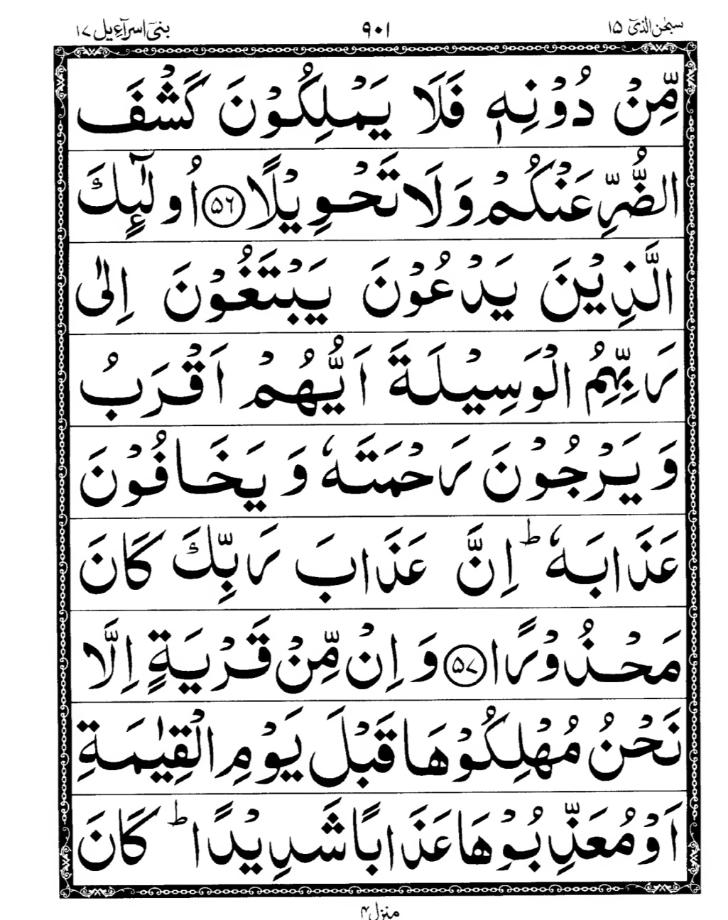 سبحٰن الذیٓ ١۵ ٩٠١ بنیٓ اسرآءیل ١٧
مِّنْ دُوْنِهٖ فَلَا يَمْلِكُوْنَ كَشْفَ
الضُّرِّ عَنْكُمْ وَلَا تَحْوِيْلًا ۝٥٦ اُولٰٓئِكَ
الَّذِيْنَ يَدْعُوْنَ يَبْتَغُوْنَ اِلٰى
رَبِّهِمُ الْوَسِيْلَةَ اَيُّهُمْ اَقْرَبُ
وَيَرْجُوْنَ رَحْمَتَهٗ وَيَخَافُوْنَ
عَذَابَهٗ ؕ اِنَّ عَذَابَ رَبِّكَ كَانَ
مَحْذُوْرًا ۝٥٧ وَاِنْ مِّنْ قَرْيَةٍ اِلَّا
نَحْنُ مُهْلِكُوْهَا قَبْلَ يَوْمِ الْقِيٰمَةِ
اَوْ مُعَذِّبُوْهَا عَذَابًا شَدِيْدًا ؕ كَانَ
منزل ۴